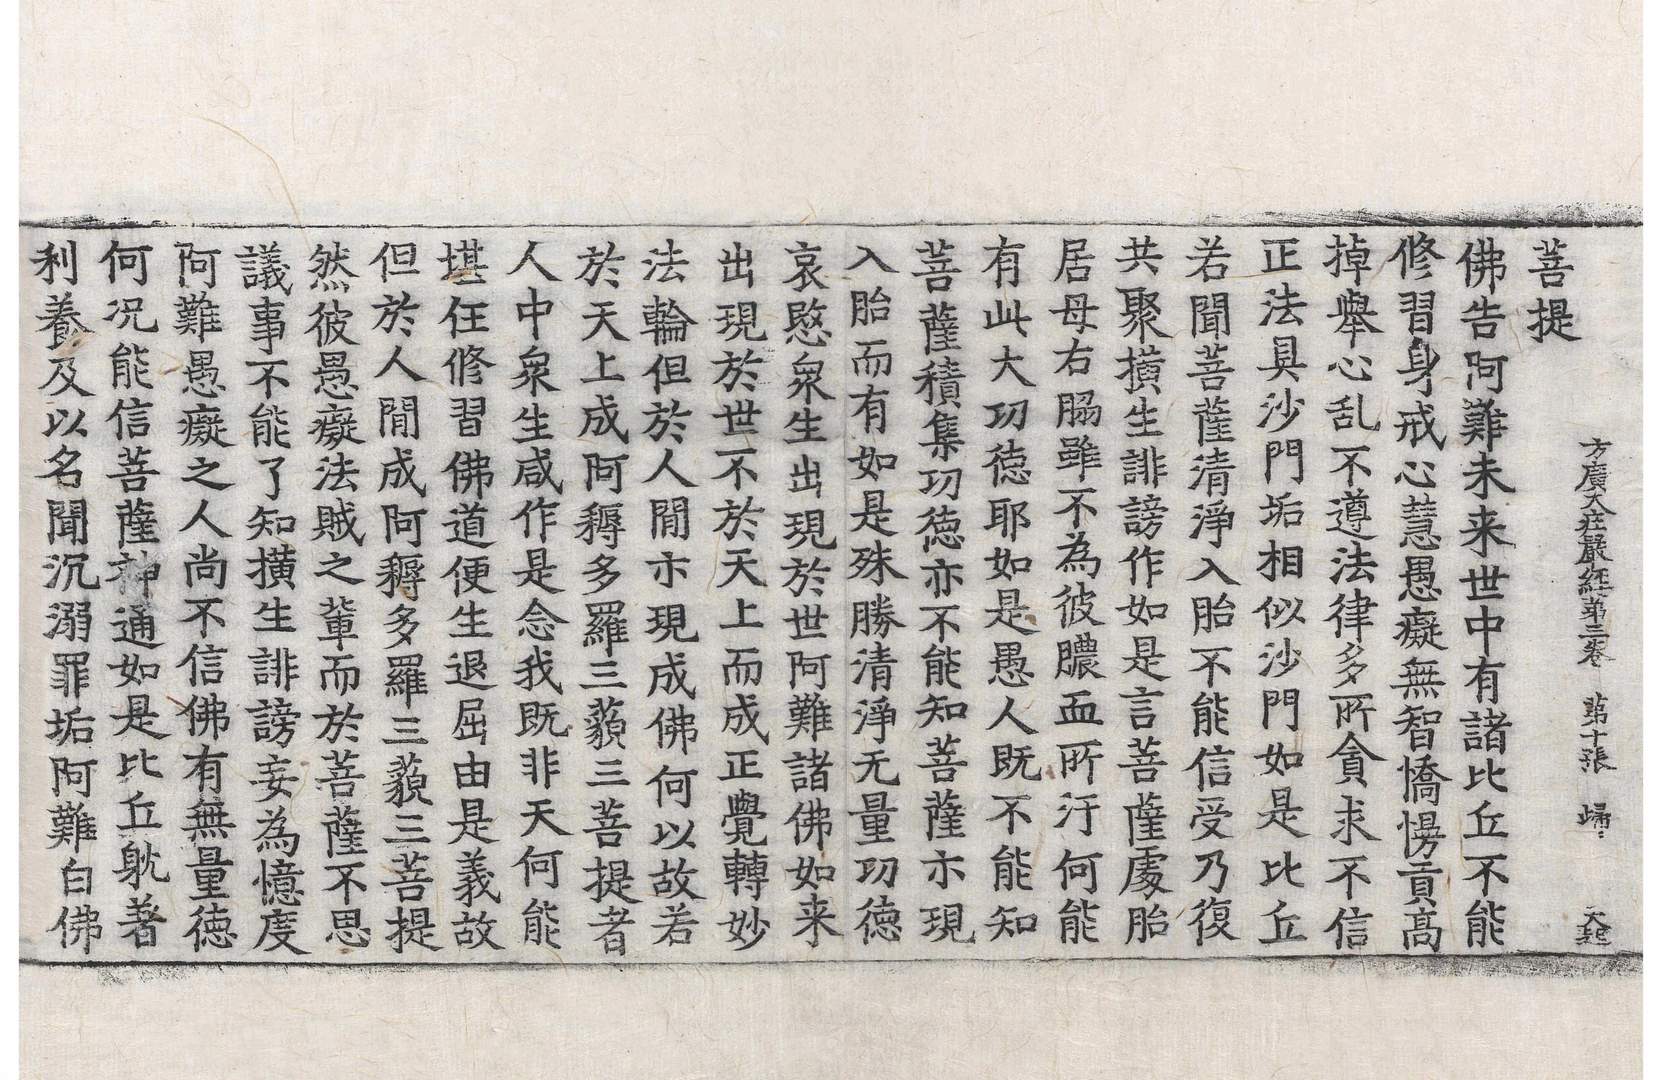 方廣大荘嚴經第三卷 第十張 歸
菩提
佛告阿難未来世中有諸比丘不能
修習身戒心慧愚癡無智憍慢貢高
掉舉心乱不遵法律多所貪求不信
正法具沙門垢相似沙門如是比丘
若聞菩薩清淨入胎不能信受乃復
共聚橫生誹謗作如是言菩薩處胎
居母右脇雖不為彼膿血所汙何能
有此大功德耶如是愚人既不能知
菩薩積集功德亦不能知菩薩亦現
入胎而有如是殊勝清淨无量功德
哀愍衆生出現於世阿難諸佛如来
出現於世不於天上而成正覺轉妙
法輪但於人間示現成佛何以故若
於天上成阿耨多羅三藐三菩提者
人中衆生咸作是念我既非天何能
堪任修習佛道便生退屈由是義故
但於人間成阿耨多羅三藐三菩提
然彼愚癡法賊之輩而於菩薩不思
議事不能了知橫生誹謗妄為憶度
阿難愚癡之人尚不信佛有無量德
何況能信菩薩神通如是比丘躭著
利養及以名聞沉溺罪垢阿難白佛